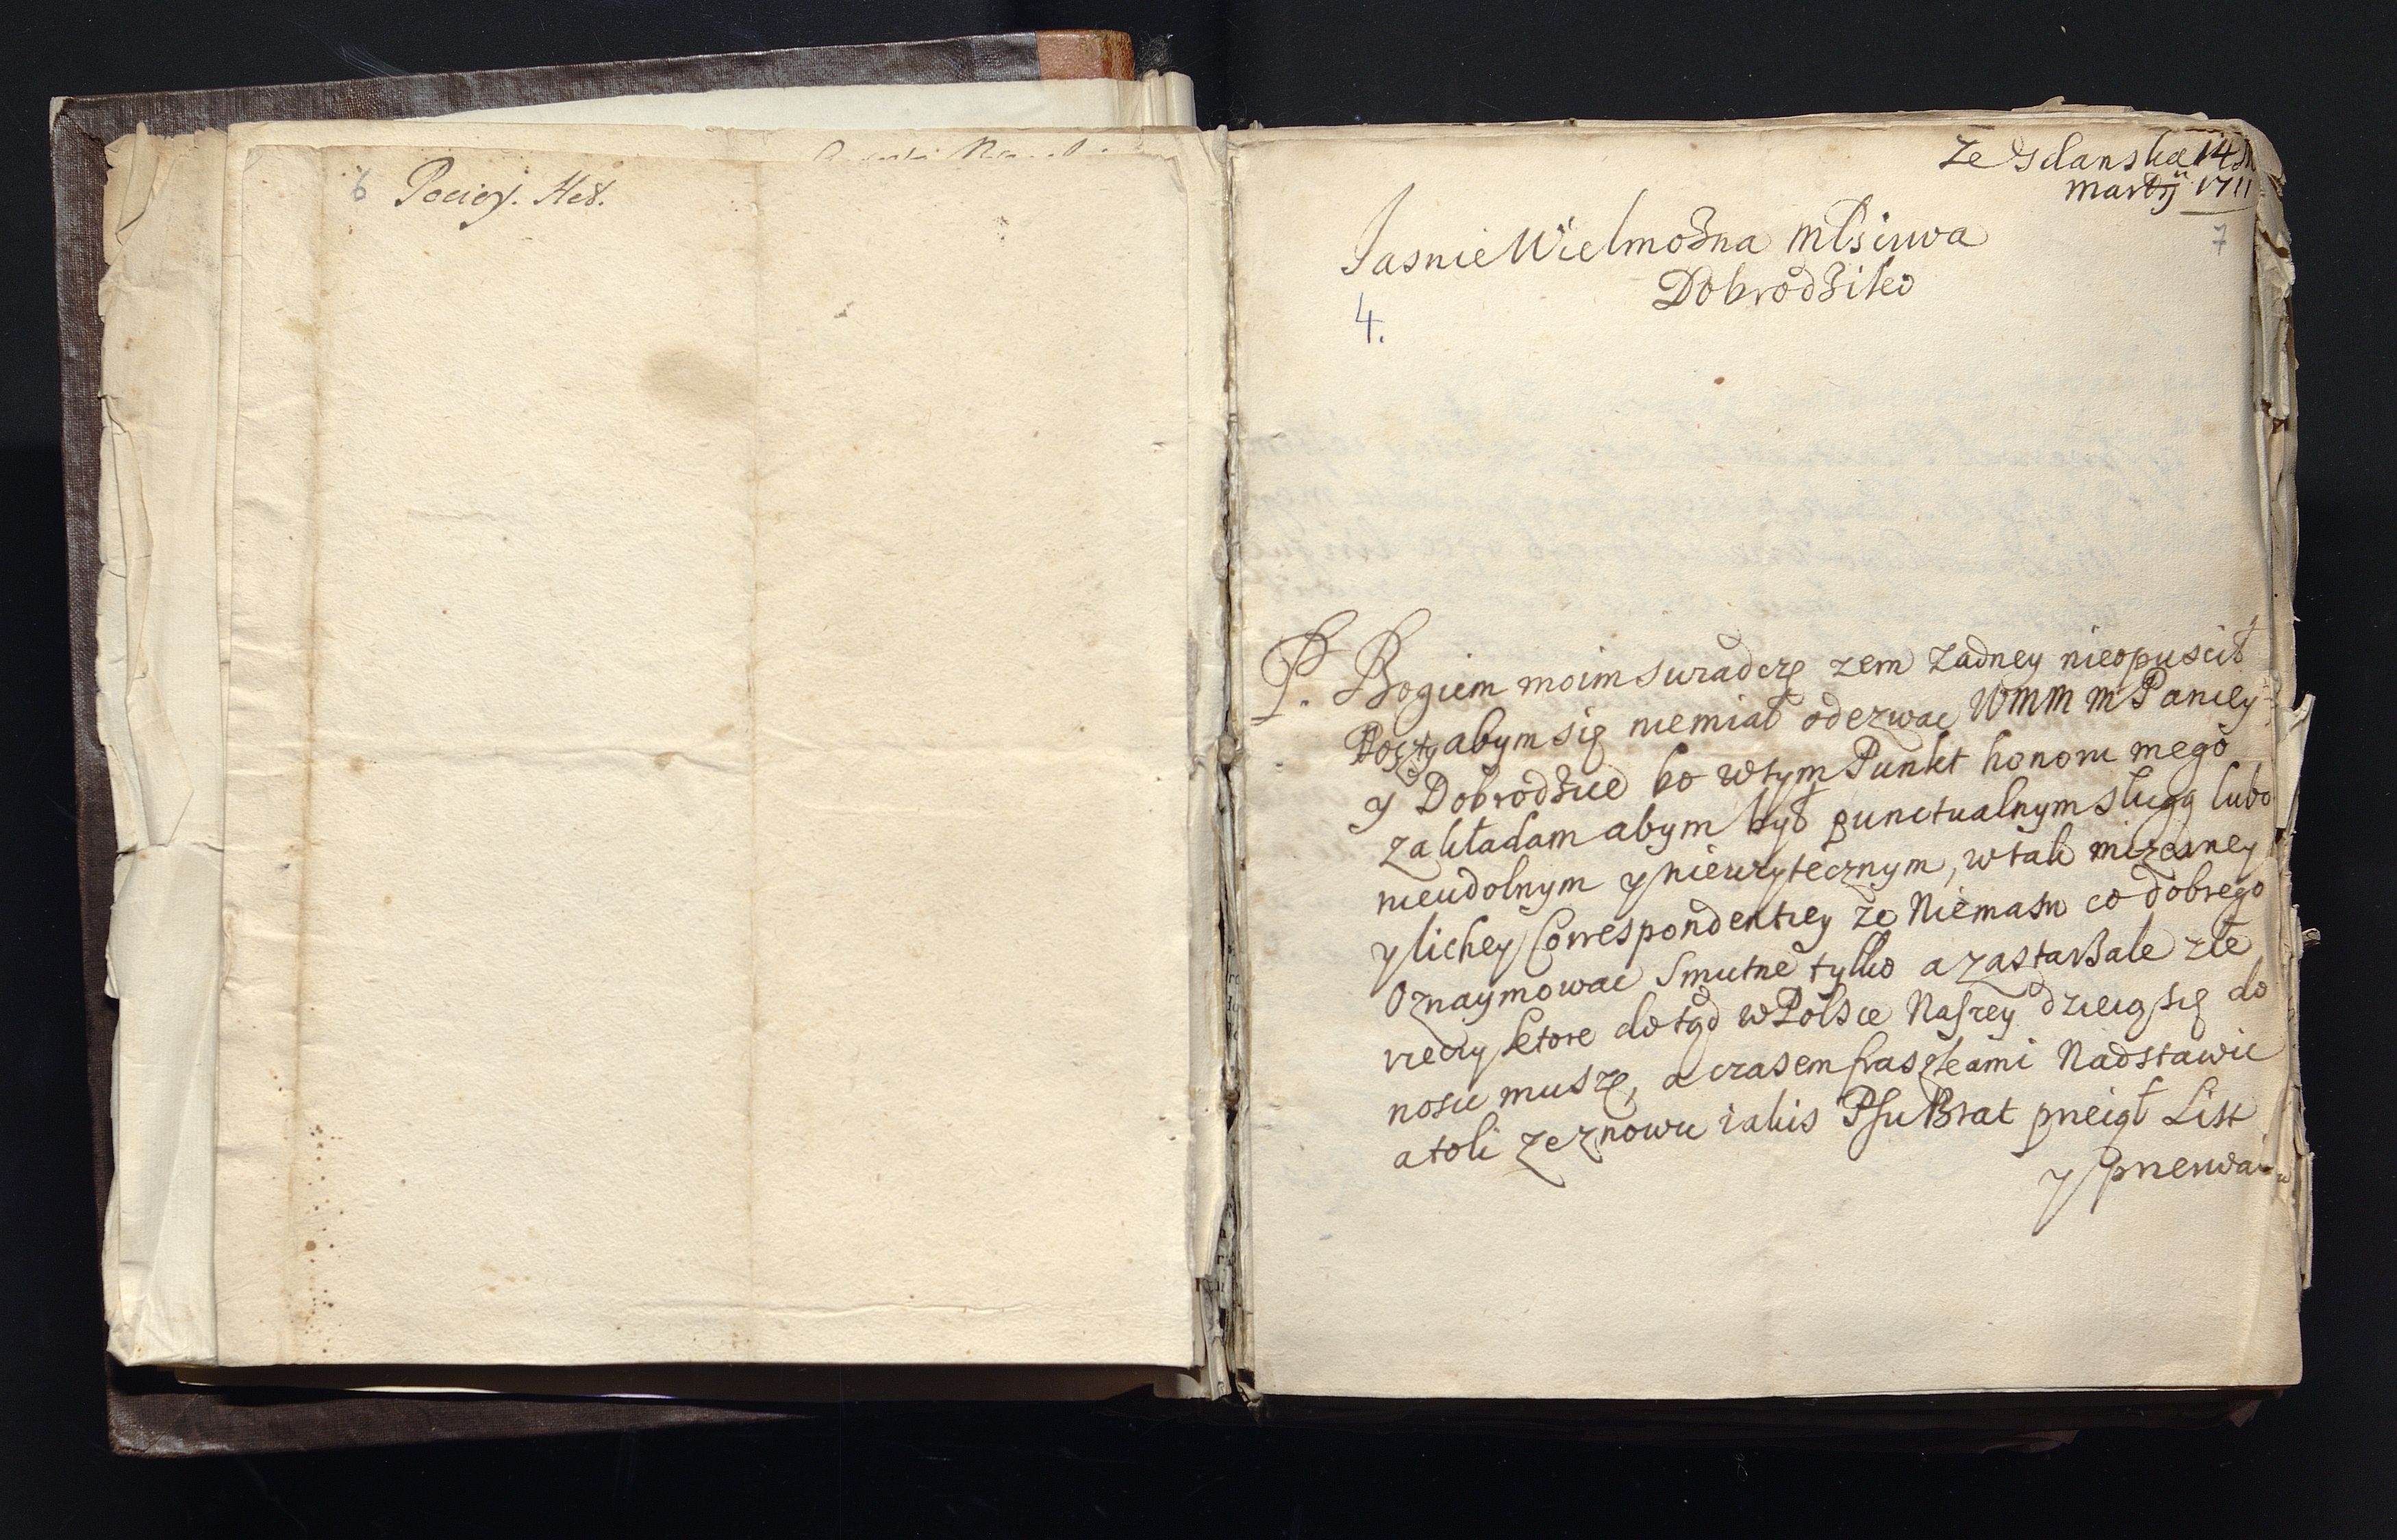 6 Pociey. Het.
Ze Gdanska 14
martij 1711
7
Jasnie Wielmożna mPsciwa
Dobrodżiko
4.
P. Bogiem moim swiadczę zem Zadney nieopuscił
Poczty abym się niemiał odezwac WMM m Paniey
y Dobrodżice bo wtym Punkt honoru mego
zakładam abym był punctualnym sługą lubo
nieudolnym y nieuzytecznym, wtak mizerney
y lichey Correspondentiey ze Niemasz co dobrego
Oznaymowac Smutne tylko a zastarżałe złe
rzeczy ktore dotąd wPolsce Naszey dzieią się do
nosic muszę, a czasem fraszkami Nadstawic
atoli ze znowu iakis Psu Brat przeiął List
y przerwa